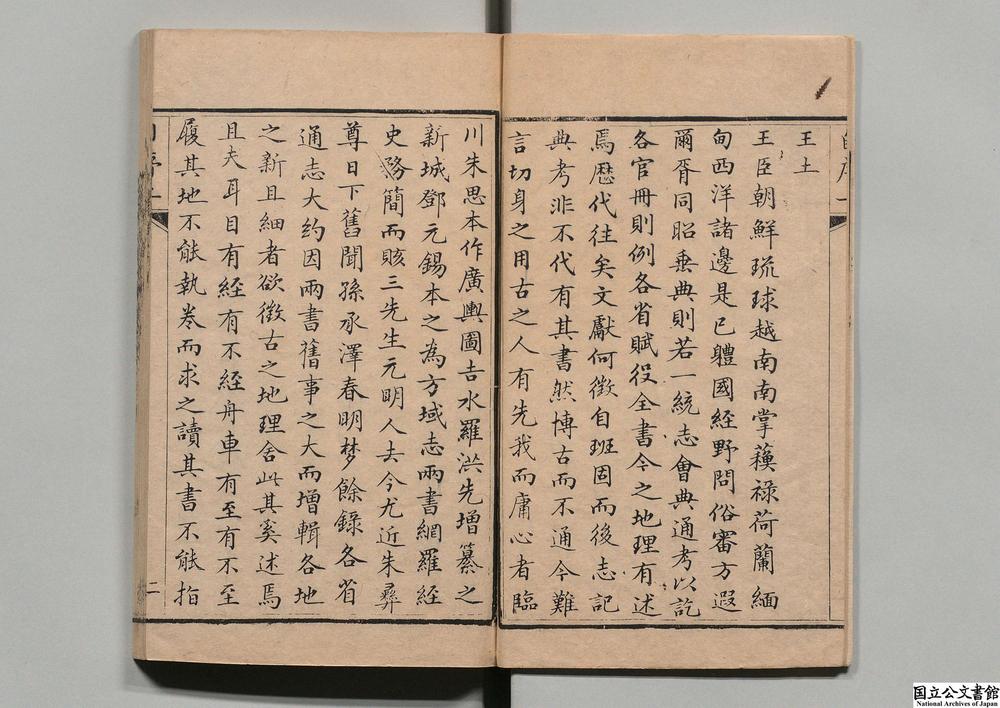 王土
王臣朝鮮琉球越南南掌蘓祿荷蘭緬
甸西洋諸邊是已軆國經野問俗審方遐
爾胥同昭垂典則若一統志會典通考以訖
各官冊則例各省賦役全書今之地理有述
焉歴代徃矣文獻何徴自班固而後志記
典考非不代有其書然博古而不通今難
言切身之用古之人有先我而庸心者臨
川朱思本作廣輿圖吉水羅洪先增纂之
新城鄧元錫本之為方域志兩書網羅經
史務簡而賅三先生元明人去今尤近朱彝
尊日下舊聞孫承澤春明梦餘錄各省
通志大約因兩書舊事之大而增輯各地
之新且細者欲徴古之地理舍此其奚述焉
且夫耳目有經有不經舟車有至有不至
履其地不能執卷而求之讀其書不能指
二
国立公文書館
National Archives of Japan